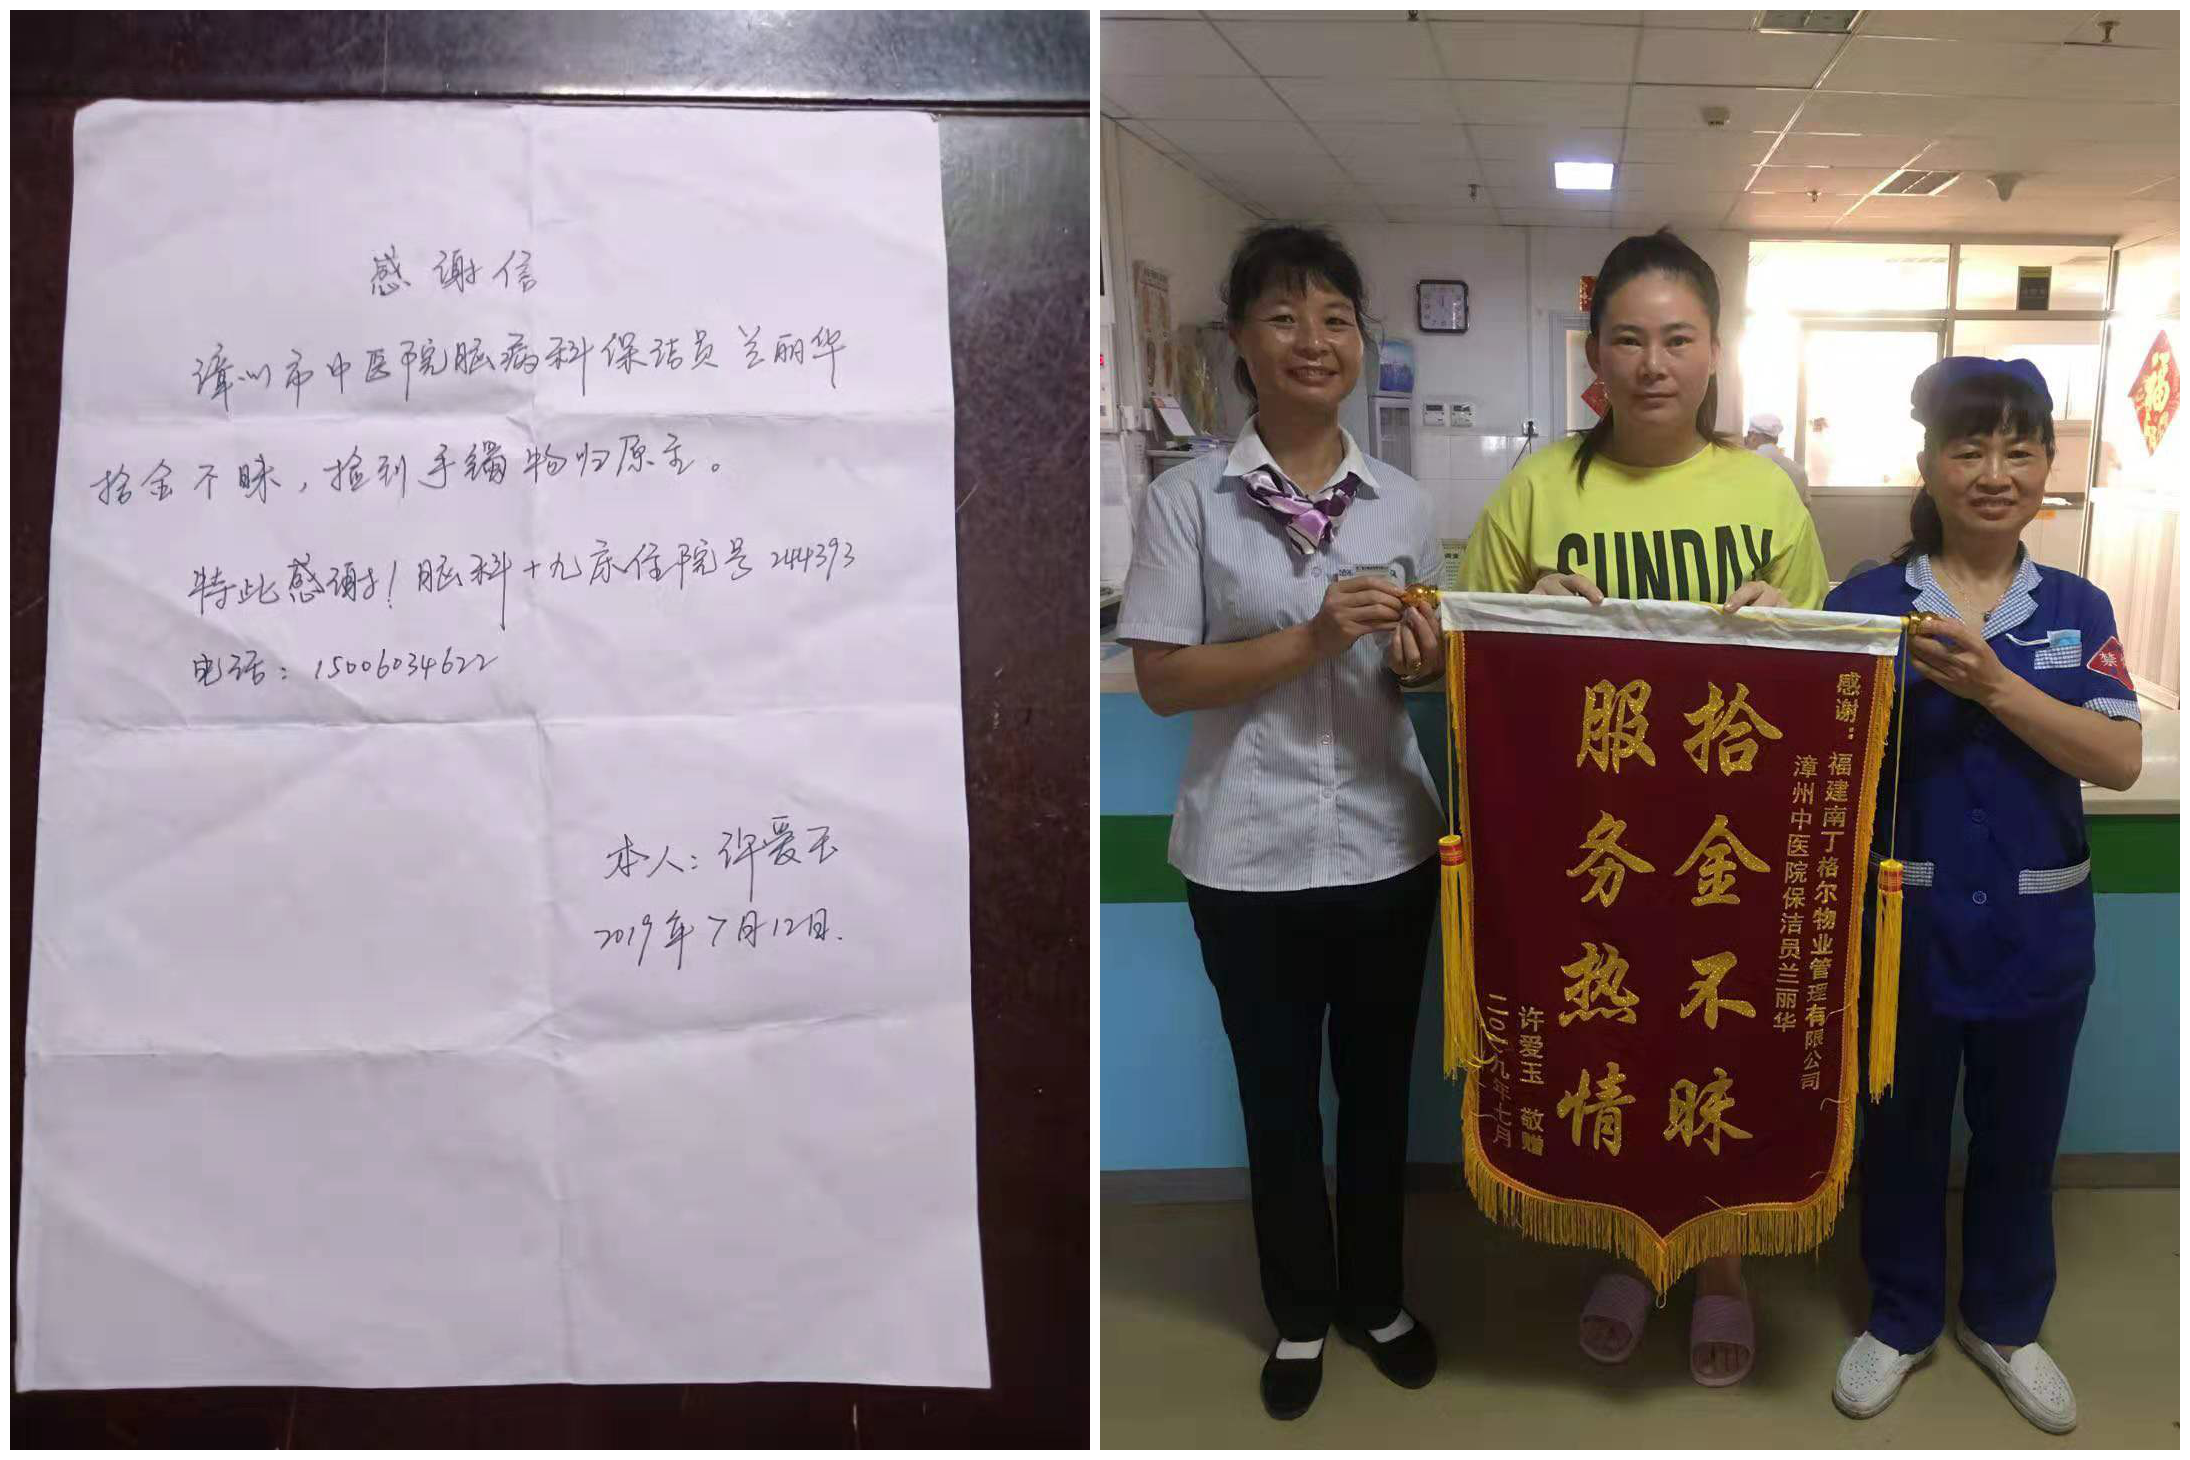 感谢信
漳州市中医院脑病科保洁员兰丽华
拾金不昧，捡到手镯物归原主。
特此感谢！脑科十九床住院号244393
电话：15006034622
本人：许爱玉
2019年7月12日.
SUNDAY
感谢：福建南丁格尔物业管理有限公司
漳州中医院保洁员兰丽华
拾金不昧
服务热情
许爱玉 敬赠
二〇一九年七月
福
禁